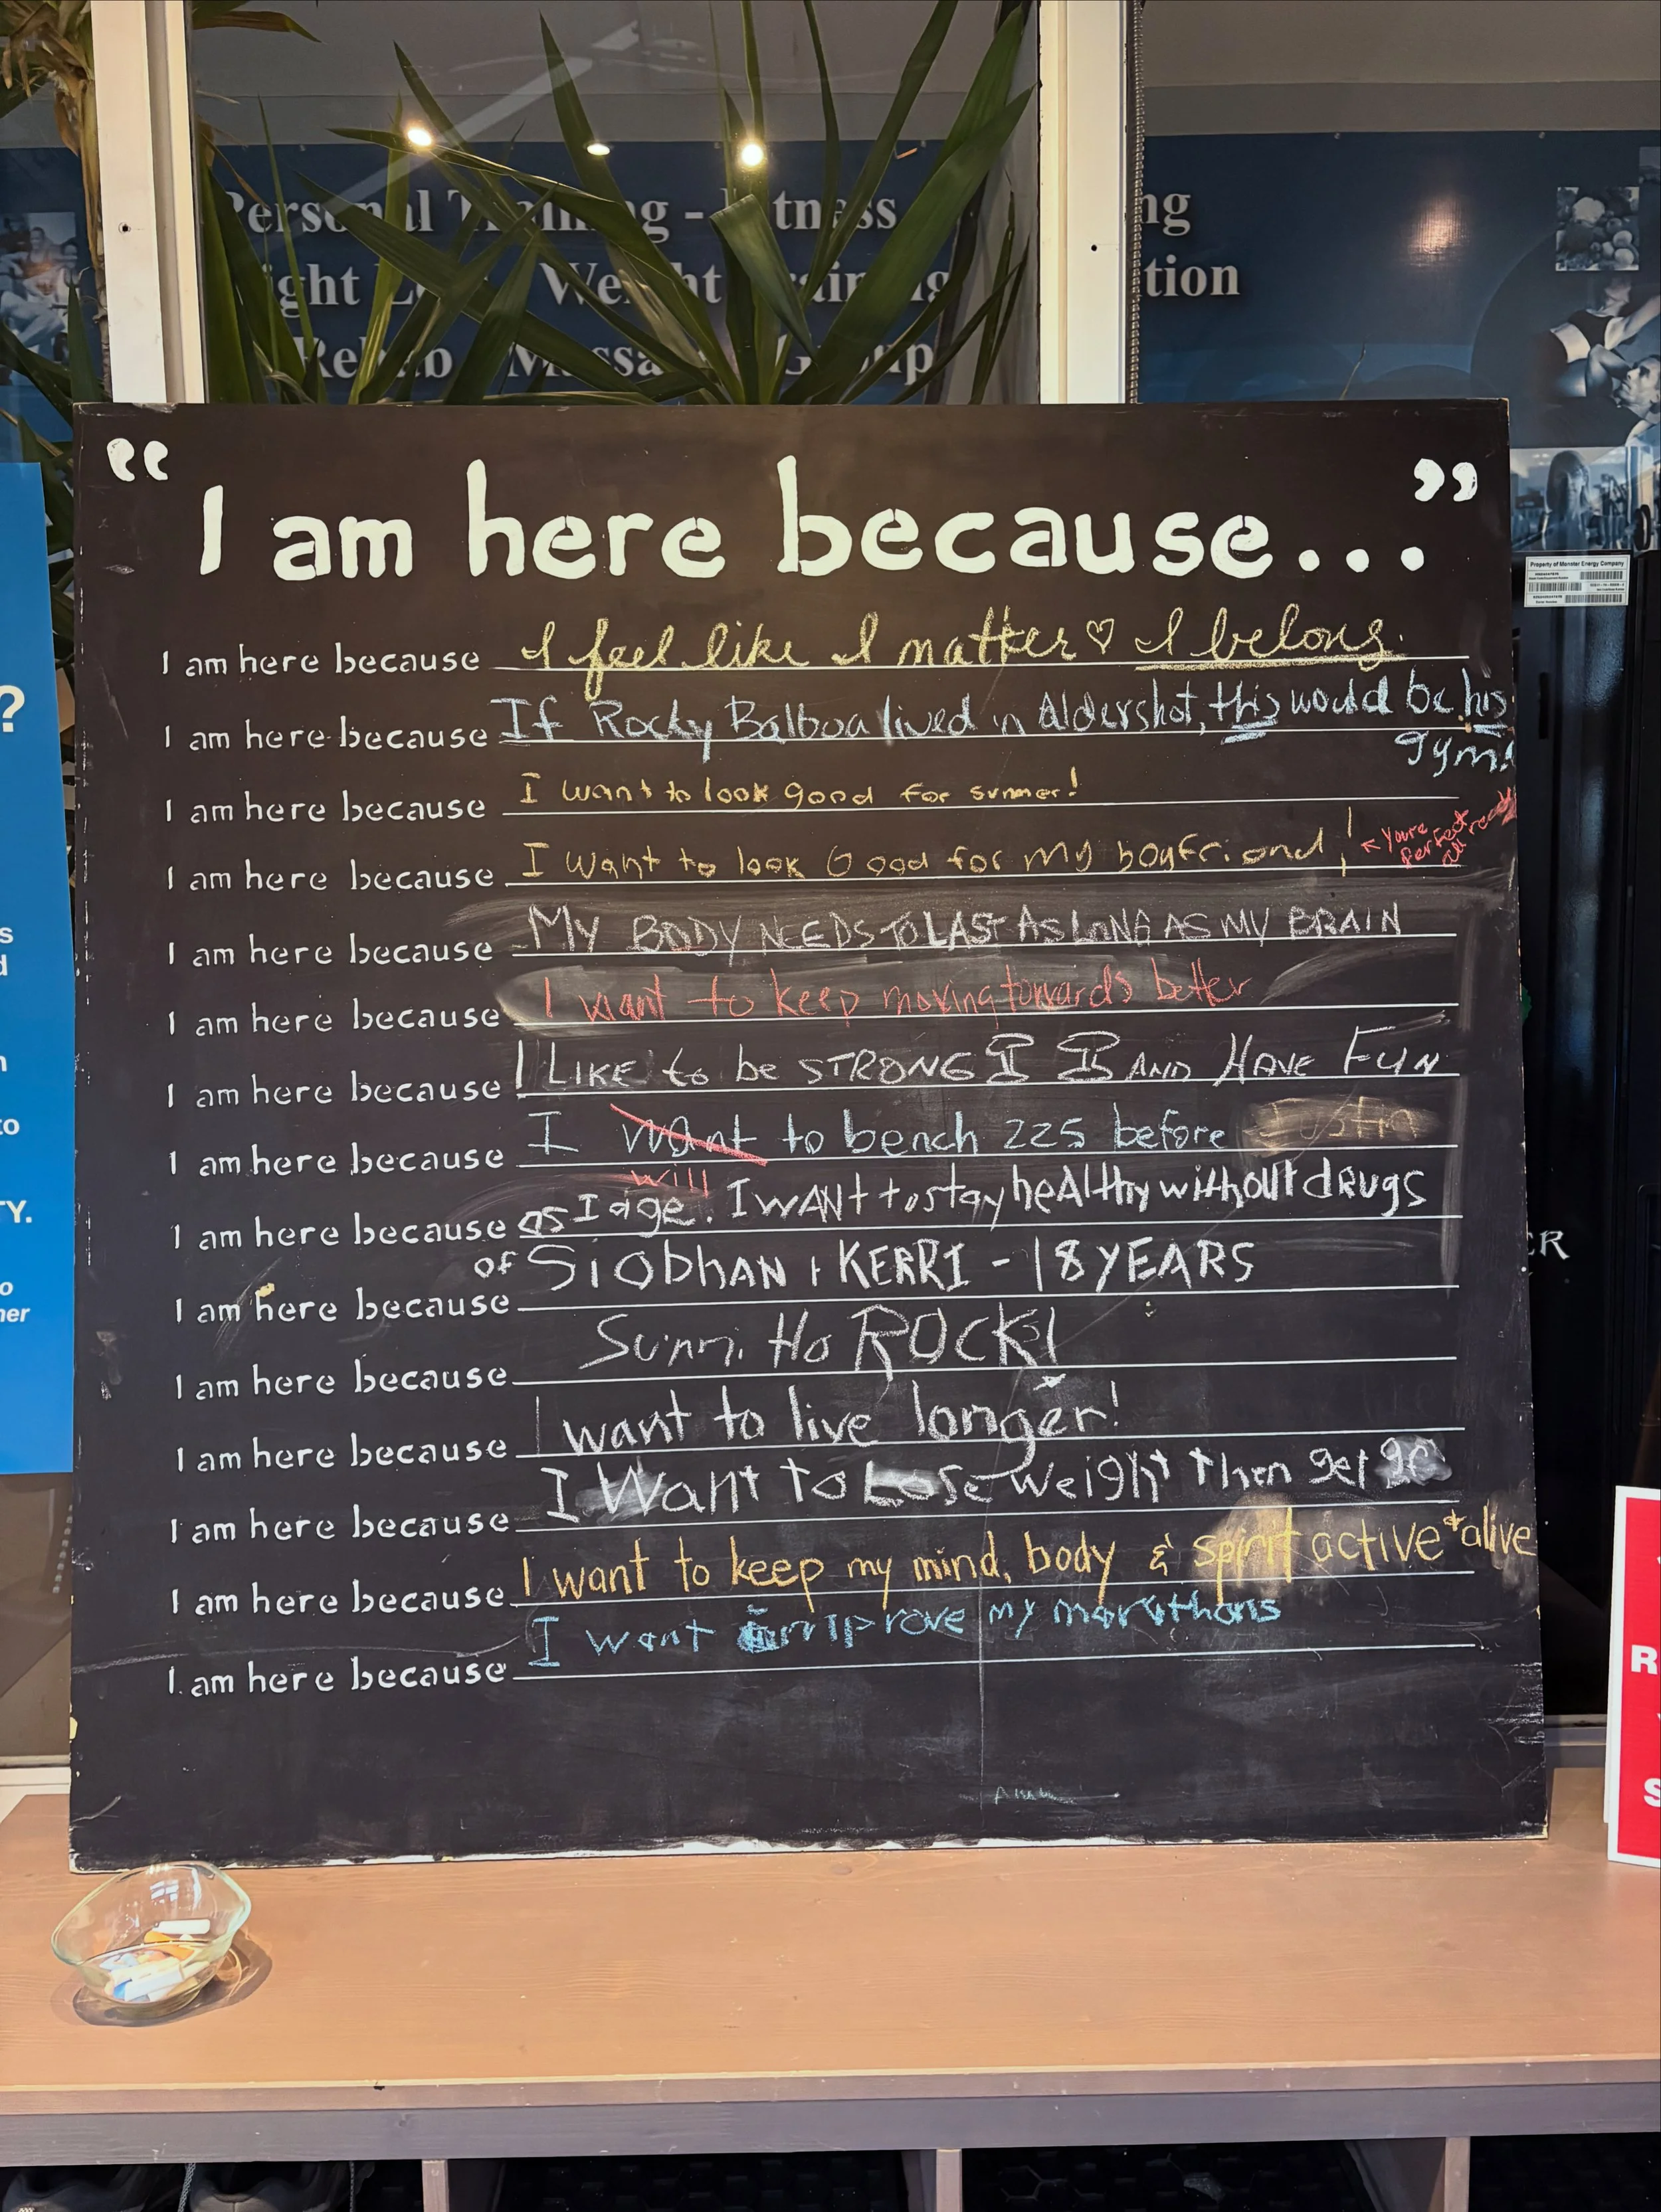 Personal Training - Fitness
ng
ght Weight Training
tion
Rehab Massa Group
Property of Monster Energy Company
“I am here because...”
I am here because I feel like I matter ♡ I belong.
I am here because If Rocky Balboa lived in Aldershot, this would be his
gym!
I am here because I want to look good for summer!
I am here because I want to look Good for my boyfriend! ↖ You're
perfect
I am here because MY BODY NEEDS TO LAST AS LONG AS MY BRAIN
I am here because I want to keep moving towards better
I am here because I LIKE to be STRONG AND HAVE FUN
I am here because I want to bench 225 before
will
I am here because as I age. I WANT to stay heAlthy without drugs
I am here because of SiobhAN + KERRI - 18 YEARS
I am here because Ho ROCK!
I am here because I want to live longer!
I am here because I Want to Lose weight then get
I am here because I want to keep my mind, body & spirit active + alive
I am here because I want improve my marathons
?
s
d
n
to
TY.
o
her
ER
R
S